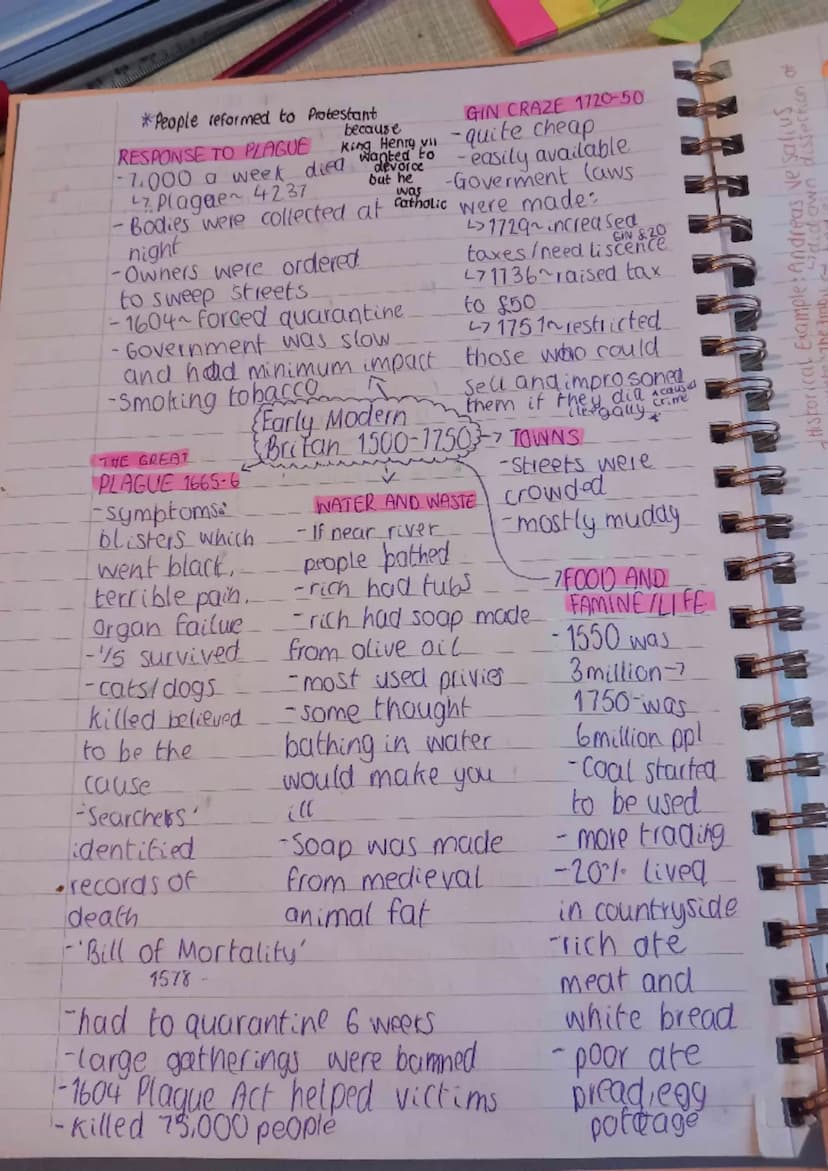 *People reformed to Protestant
because
King Henry VII
wanted to
devorce
but he
was
Catholic
RESPONSE TO PLAGUE
- 7,000 a week died
↳ Plague~ 4237
- Bodies were collected at
night
- Owners were ordered
to sweep streets
- 1604~ forced quarantine
- Government was slow
and had minimum impact
- Smoking tobacco
GIN CRAZE 1720-50
- quite cheap
- easily available
- Goverment laws
were made:
↳ 1729~ increased
taxes/need liscence
GIN &20
↳ 1736~ raised tax
to £50
↳ 1751~ restricted
those who could
sell and improsoned
them if they did
illegally *
^ caused
crime
Early Modern
Britan 1500-1750
→ TOWNS
- streets were
crowded
- mostly muday
THE GREAT
PLAGUE 1665-6
- symptoms:
blisters which
went black,
terrible pain,
organ failue
- 1/5 survived
- cats/dogs
killed believed
to be the
cause
- 'Searchers'
identified
records of
death
- 'Bill of Mortality'
1578
- had to quarantine 6 weeks
- large gatherings were banned
- 1604 Plague Act helped victims
- Killed 75,000 people
WATER AND WASTE
- If near river
people bathed
- rich had tubs
- rich had soap made
from olive oil
- most used privies
- some thought
bathing in water
would make you
ill
- Soap was made
from medieval
animal fat
→ FOOD AND
FAMINE/LIFE
- 1550 was
3million→
1750-was
6million ppl
- Coal started
to be used
- more trading
- 20% lived
in countryside
- rich ate
meat and
white bread
- poor ate
bread, egg
potage
Historical Example: Andreas Vesalius